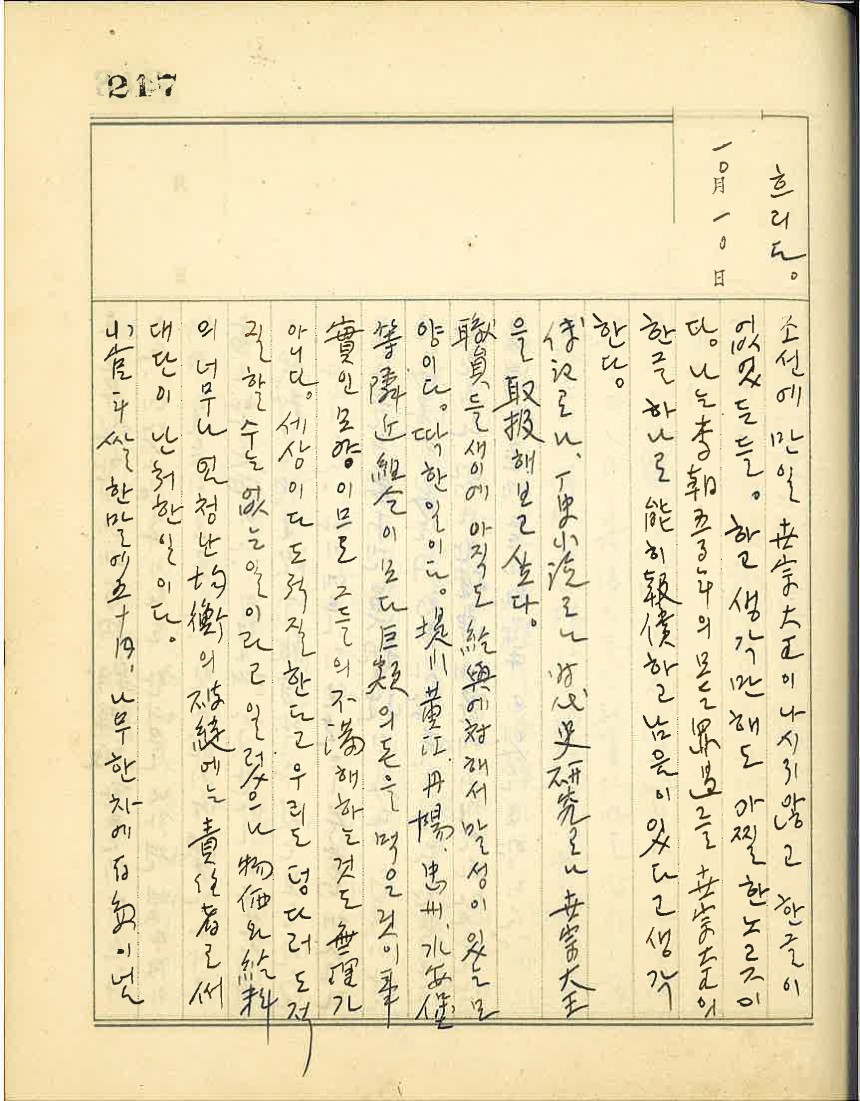 217
흐리다。
一○月一○日
조선에 만일 世宗大王이 나시지 않고 한글이
없었든들。하고 생각만해도 아찔한노릇이
다。나는 李朝五百年의 모든 罪過를 世宗大王의
한글 하나로 能히 報償하고 남음이 있다고 생각
한다。
傳記로나、丁史小說로나 時代史硏究로나 世宗大王
을 取扱해보고 싶다。
職員들 새이에 아직도 給與에 對해서 말성이 있는 모
양이다。딱한일이다。堤川 黃江、丹陽、忠州、水安堡
等 隣近組合이 모다 巨額의 돈을 먹은 것이 事
實인 모양이므로 그들의 不滿해하는것도 無理가
아니다。세상이 다 도적질한다고 우리도 덩다러 도적
질할 수는 없는일이라고 일렀으나 物価와 給料
의 너무나 엄청난 均衡의 破綻에는 責任者로써
대단이 난처한일이다。
小官斗 쌀 한말에 五十円、나무 한차에 百数이넌